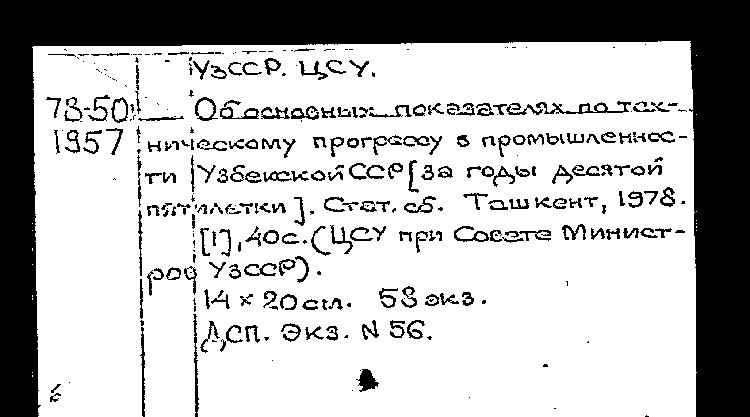 УзССР. ЦСУ.
78-50 Об основных показателях по тех-
1957 ническому прогрессу в промышленнос-
ти Узбекской ССР [за годы десятой
пятилетки]. Стат. сб. Ташкент, 1978.
[1], 40 с. (ЦСУ при Совете Минист-
ров УзССР).
14 × 20 см. 58 экз.
ДСП. Экз. N 56.